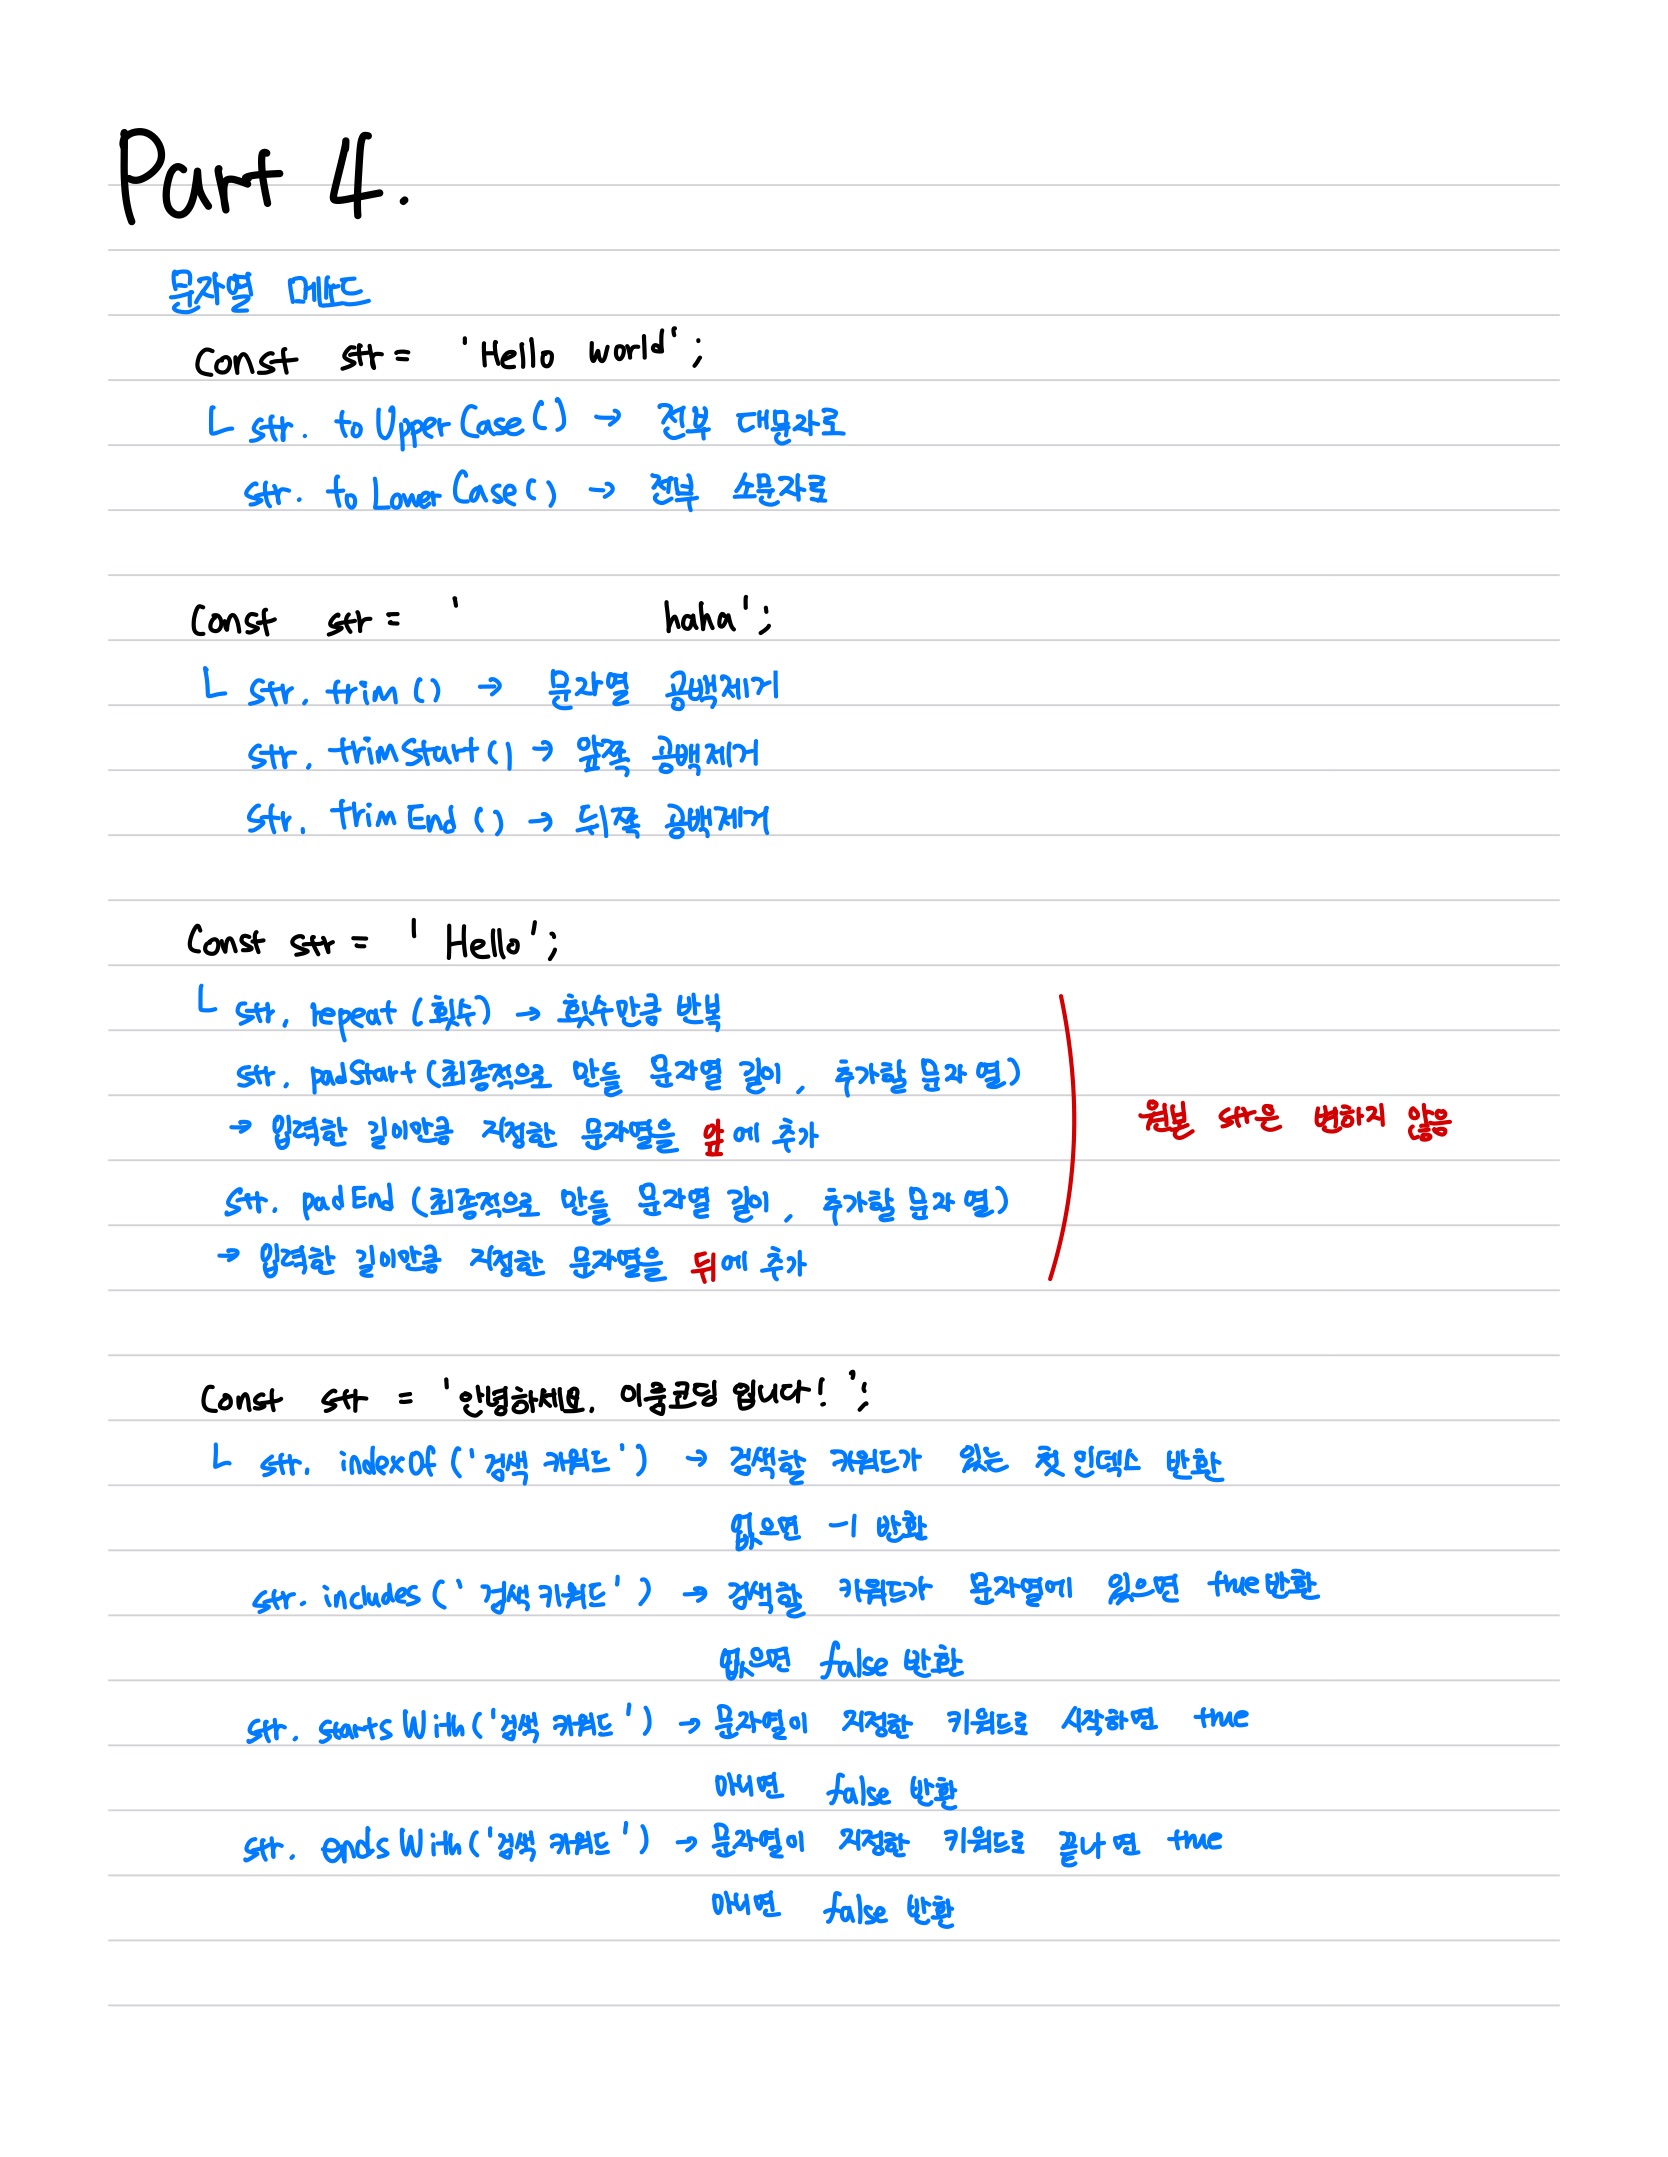 Part 4.
문자열 메소드
Const str = 'Hello world';
└ str. toUpperCase() → 전부 대문자로
str. toLowerCase() → 전부 소문자로
Const str = '          haha';
└ str. trim() → 문자열 공백제거
str. trimStart() → 앞쪽 공백제거
str. trimEnd() → 뒤쪽 공백제거
Const str = ' Hello';
└ str. repeat(횟수) → 횟수만큼 반복
str. padStart(최종적으로 만들 문자열 길이, 추가할 문자열)
→ 입력한 길이만큼 지정한 문자열을 앞에 추가
원본 str은 변하지 않음
str. padEnd(최종적으로 만들 문자열 길이, 추가할 문자열)
→ 입력한 길이만큼 지정한 문자열을 뒤에 추가
Const str = '안녕하세요. 이룸코딩 입니다!';
└ str. indexOf('검색 키워드') → 검색할 키워드가 있는 첫 인덱스 반환
없으면 -1 반환
str. includes('검색 키워드') → 검색할 키워드가 문자열에 있으면 true 반환
없으면 false 반환
str. startsWith('검색 키워드') → 문자열이 지정한 키워드로 시작하면 true
아니면 false 반환
str. endsWith('검색 키워드') → 문자열이 지정한 키워드로 끝나면 true
아니면 false 반환